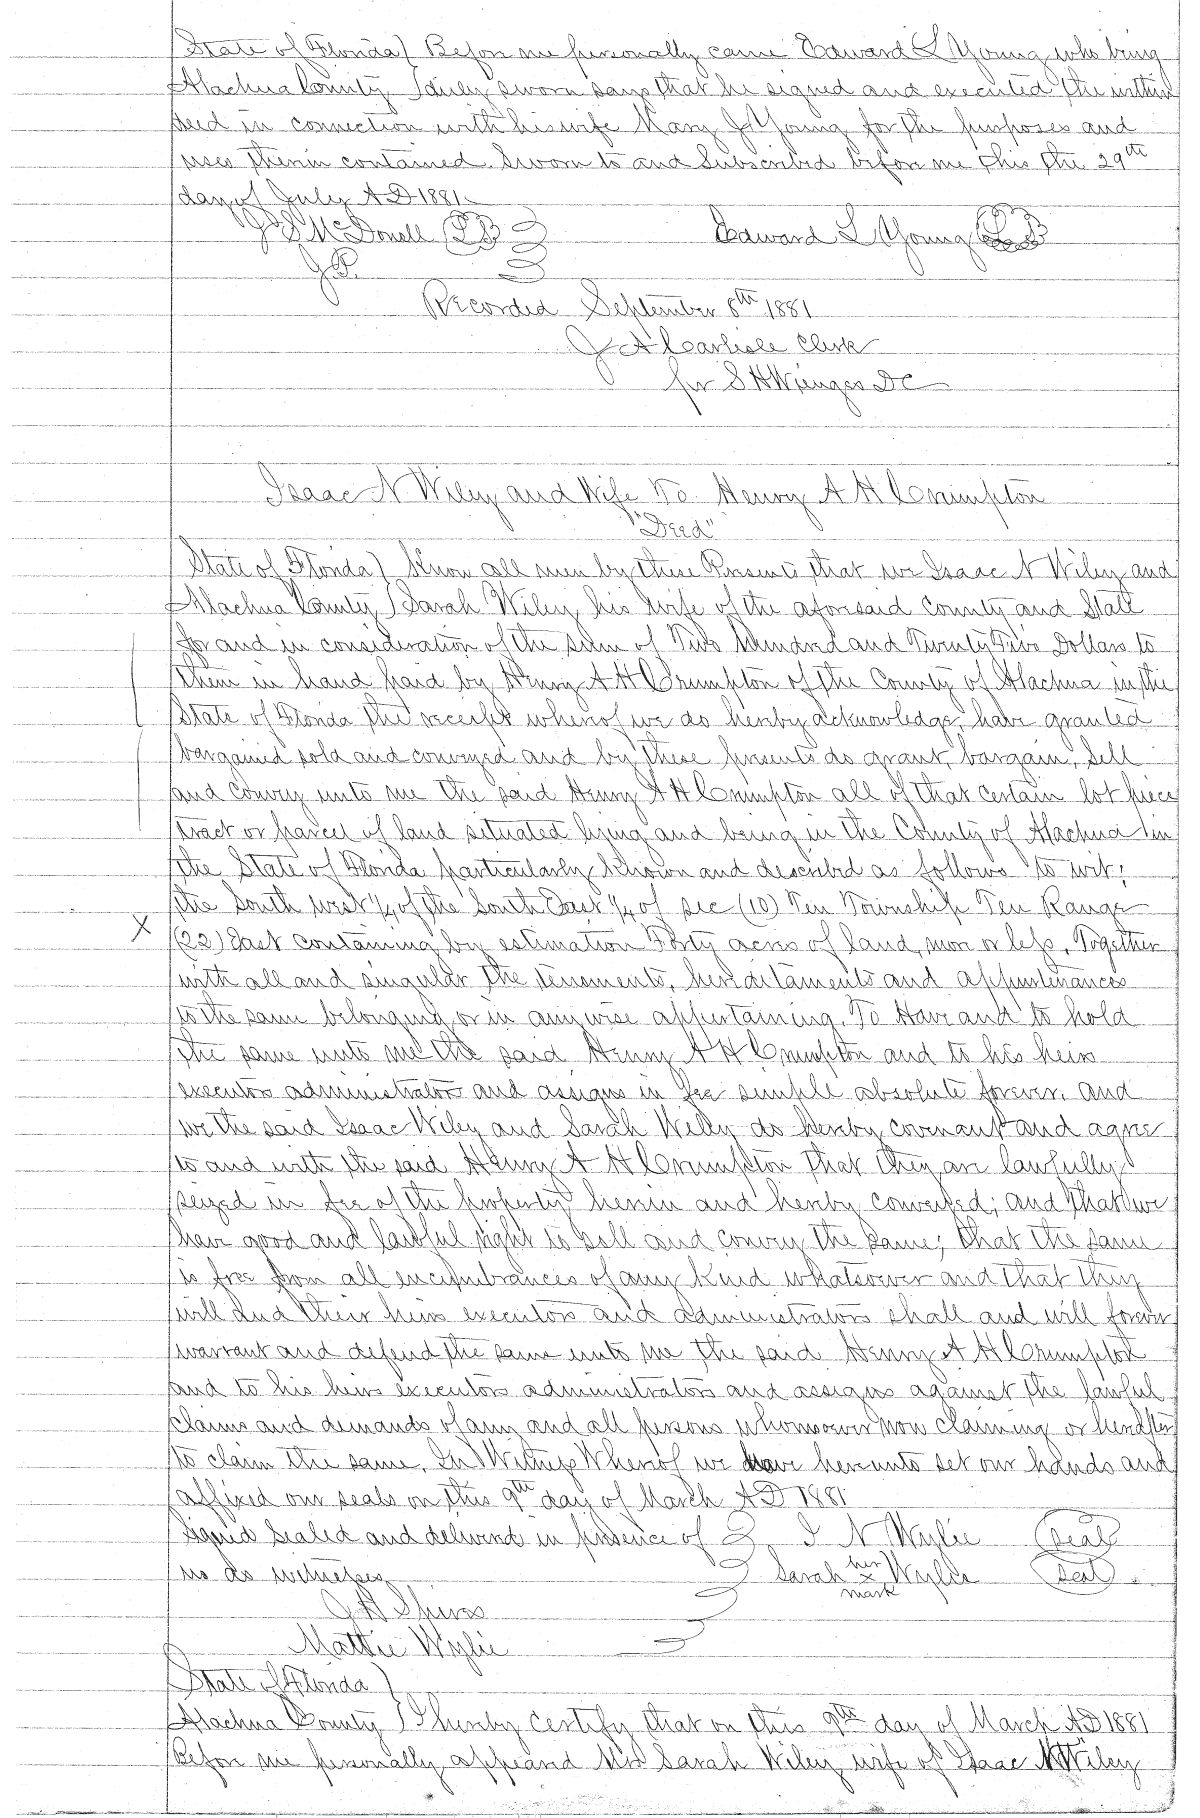 State of Florida } Before me personally came Edward L Young who being
Alachua County } duly sworn says that he signed and executed the within
deed in connection with his wife Mary J Young for the purposes and
uses therein contained. Sworn to and Subscribed before me this the 29th
day of July AD 1881
J S McDonell LS
Edward L Young LS
J.P.
Recorded September 8th 1881
J A Carlisle Clerk
for S H Wienges DC
Isaac N Wiley and Wife To Henry A H Crumpton
"Deed"
State of Florida } Know all men by these Presents that we Isaac N Wiley and
Alachua County } Sarah Wiley his wife of the aforesaid County and State
for and in consideration of the sum of Two Hundred and Twenty Five Dollars to
them in hand paid by Henry A H Crumpton of the County of Alachua in the
State of Florida the receipt whereof we do hereby acknowledge, have granted
bargained sold and conveyed and by these presents do grant, bargain, sell
and convey unto me the said Henry A H Crumpton all of that certain lot piece
tract or parcel of land situated lying and being in the County of Alachua in
the State of Florida particularly known and described as follows to wit:
the South west 1/4 of the South East 1/4 of sec (10) Ten Township Ten Range
X (22) East containing by estimation Forty acres of land, more or less. Together
with all and singular the tenements, hereditaments and appurtenances
to the same belonging or in anywise appertaining. To Have and to hold
the same unto me the said Henry A H Crumpton and to his heirs
executors administrators and assigns in fee simple absolute forever. and
we the said Isaac Wiley and Sarah Willy do hereby covenant and agree
to and with the said Henry A H Crumpton that they are lawfully
seized in fee of the property herein and hereby conveyed; and that we
have good and lawful right to sell and convey the same; that the same
is free from all encumbrances of any kind whatsoever and that they
will and their heirs executors and administrators shall and will forever
warrant and defend the same unto me the said Henry A H Crumpton
and to his heirs executors administrators and assigns against the lawful
claims and demands of any and all persons whomsoever now claiming or hereafter
to claim the same. In Witness Whereof we have hereunto set our hands and
affixed our seals on this 9th day of March AD 1881
Signed Sealed and delivered in presence of I N Wylie seal
us as witnesses Sarah her x mark Wylie seal
J H Spires
Mattie Wylie
State of Florida }
Alachua County } I hereby certify that on this 9th day of March AD 1881
Before me personally appeared Mrs Sarah Wiley wife of Isaac N Wiley